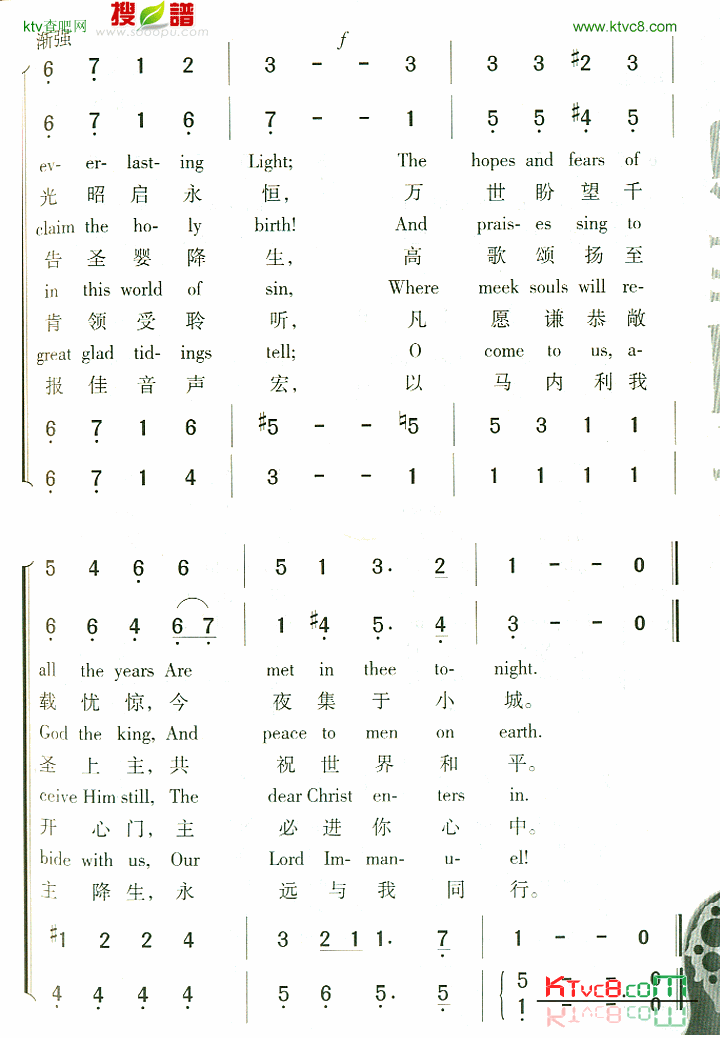 ktv查吧网
搜谱
www.sooopu.com
www.ktvc8.com
渐强 f
6 7 1 2 | 3 - - 3 | 3 3 #2 3 |
6 7 1 6 | 7 - - 1 | 5 5 #4 5 |
ev- er- last- ing Light; The hopes and fears of
光 昭 启 永 恒, 万 世 盼 望 千
claim the ho- ly birth! And prais- es sing to
告 圣 婴 降 生, 高 歌 颂 扬 至
in this world of sin, Where meek souls will re-
肯 领 受 聆 听, 凡 愿 谦 恭 敞
great glad tid- ings tell; O come to us, a-
报 佳 音 声 宏, 以 马 内 利 我
6 7 1 6 | #5 - - ♮5 | 5 3 1 1 |
6 7 1 4 | 3 - - 1 | 1 1 1 1 |
5 4 6 6 | 5 1 3. 2 | 1 - - 0 ‖
6 6 4 6 7 | 1 #4 5. 4 | 3 - - 0 ‖
all the years Are met in thee to- night.
载 忧 惊, 今 夜 集 于 小 城。
God the king, And peace to men on earth.
圣 上 主, 共 祝 世 界 和 平。
ceive Him still, The dear Christ en- ters in.
开 心 门, 主 必 进 你 心 中。
bide with us, Our Lord Im- man- u- el!
主 降 生, 永 远 与 我 同 行。
#1 2 2 4 | 3 2 1 1. 7 | 1 - - 0 ‖
4 4 4 4 | 5 6 5. 5 | 5 - - 0
1 - - 0
KTvc8.com